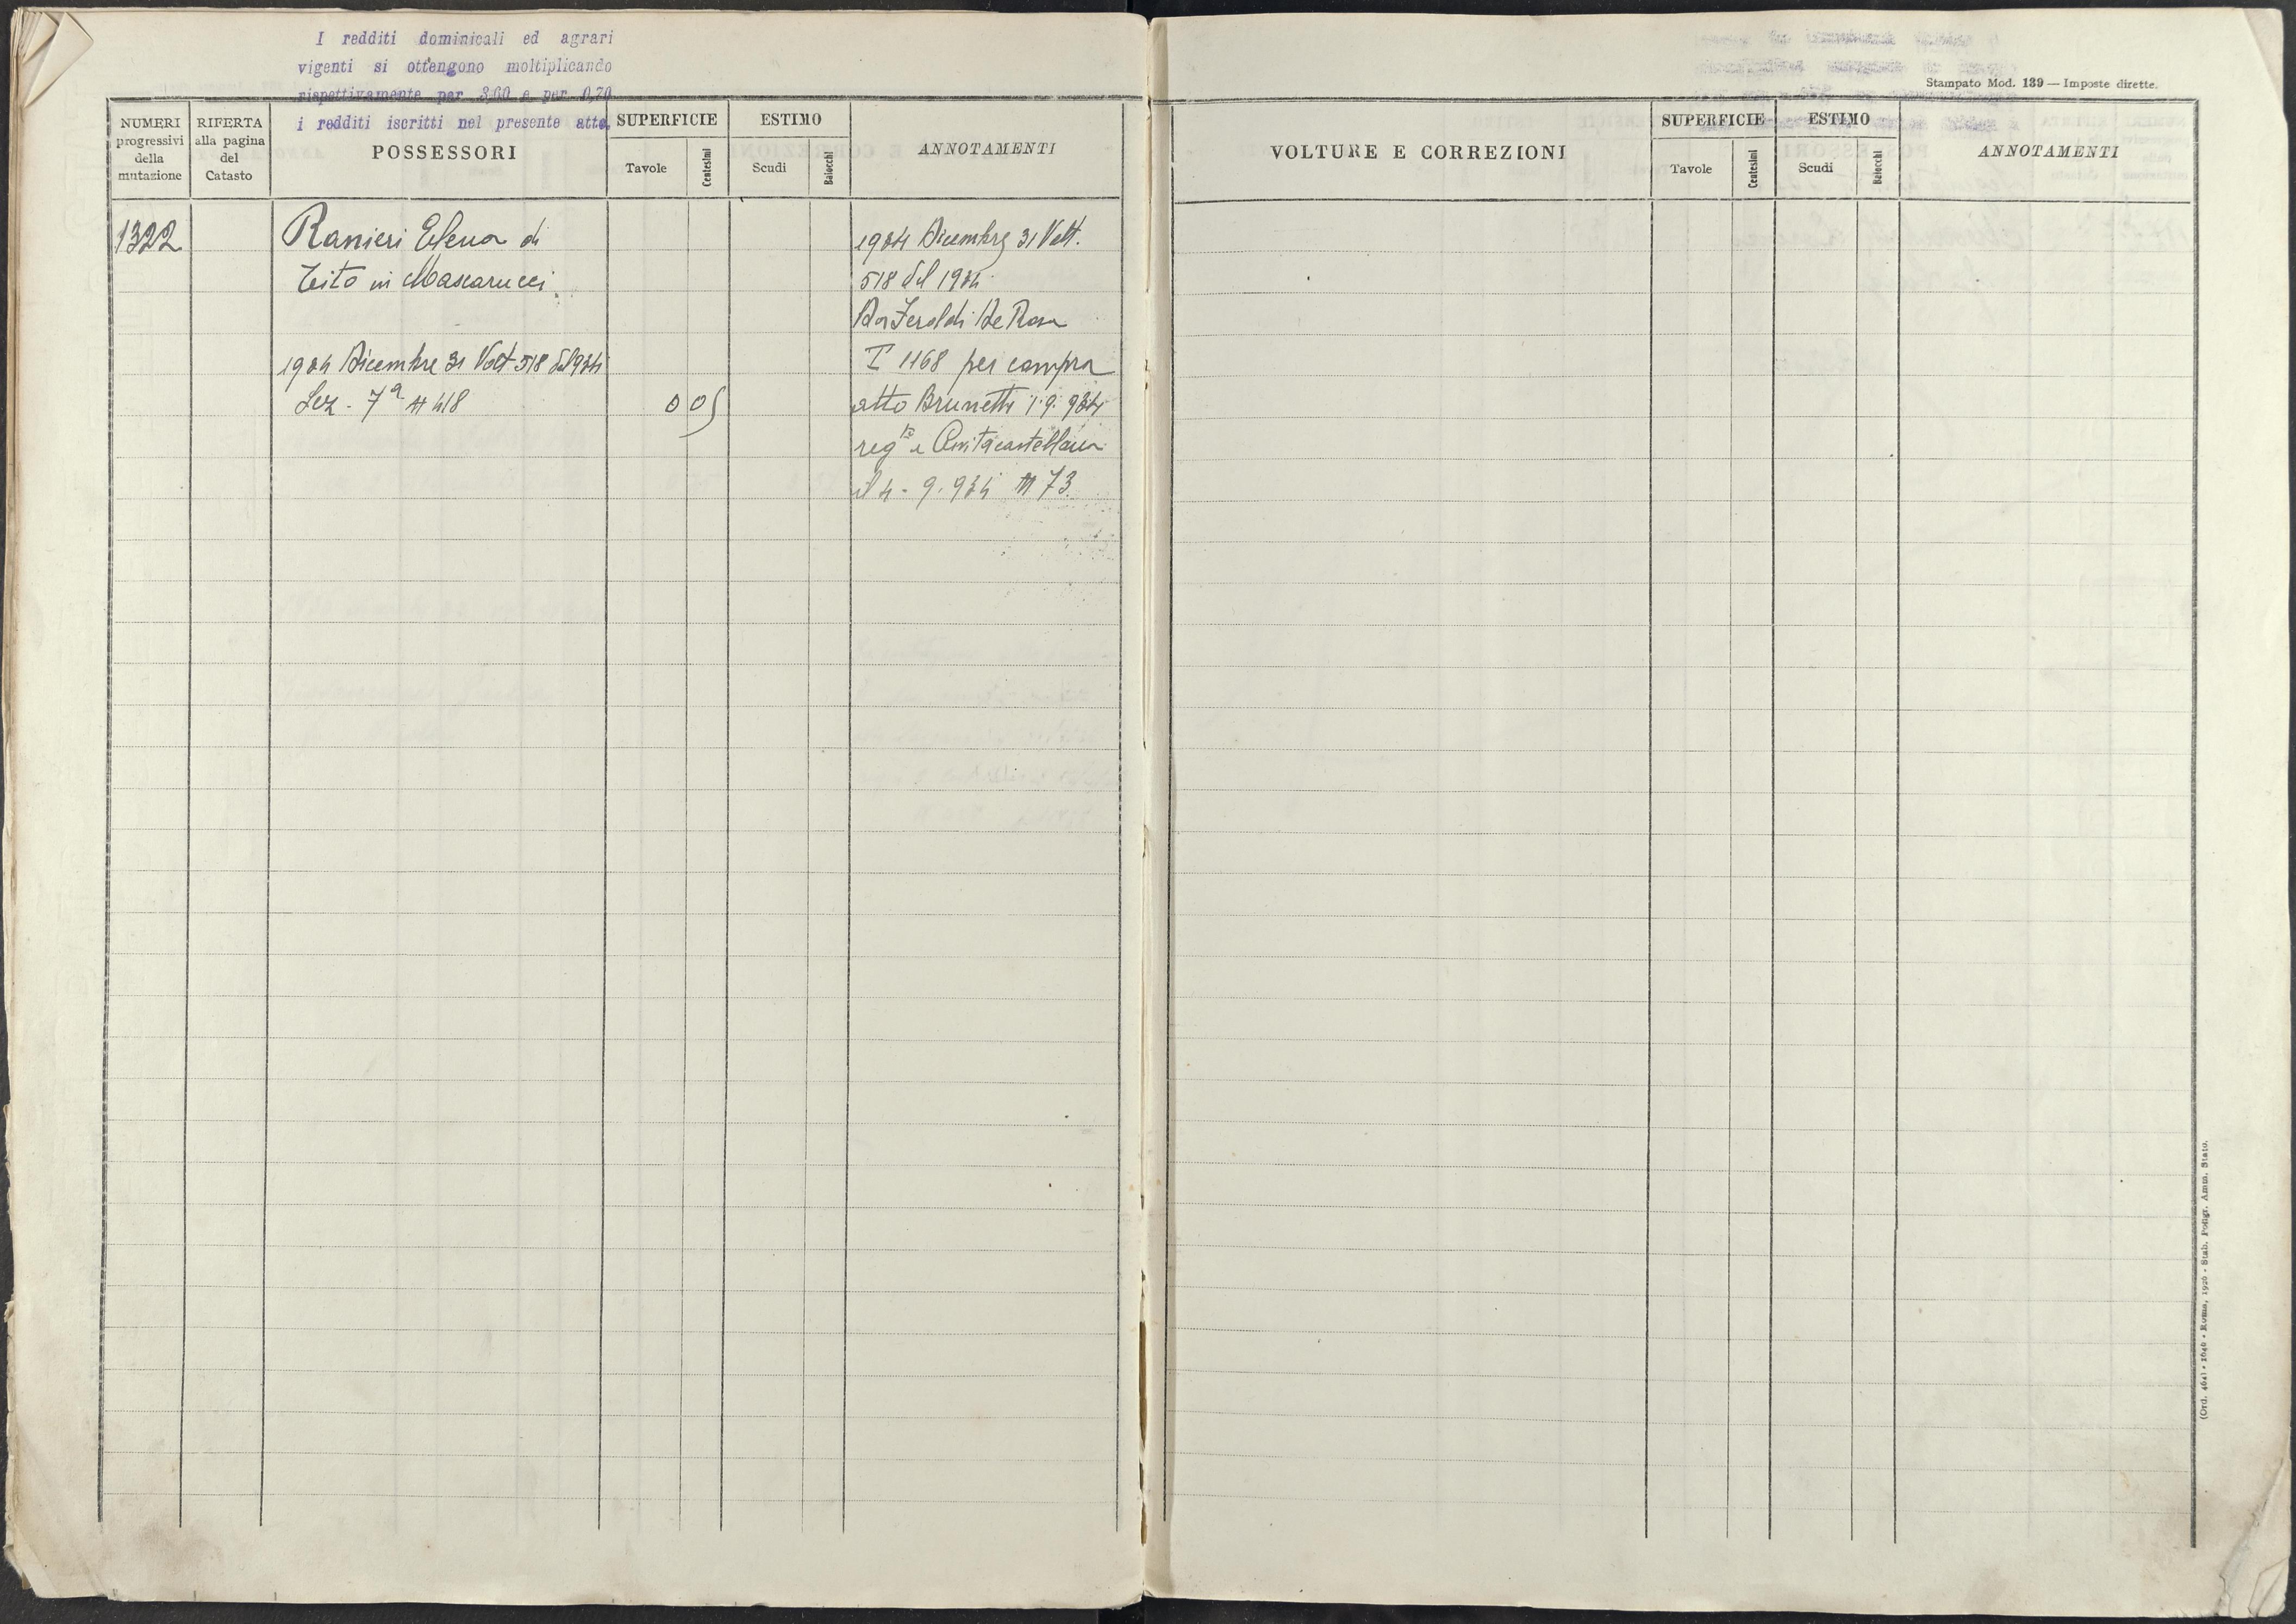 I redditi dominicali ed agrari
vigenti si ottengono moltiplicando
rispettivamente per 3,60 e per 0,70
i redditi iscritti nel presente atto.
NUMERI
progressivi
della
mutazione
RIFERTA
alla pagina
del
Catasto
POSSESSORI
SUPERFICIE
Tavole
Centesimi
ESTIMO
Scudi
Baiocchi
ANNOTAMENTI
1322
Ranieri Elena di
Tito in Mascarucci
1934 Dicembre 31 Volt 518 del 934
Sez. 7a N 418
0 05
1934 Dicembre 31 Volt.
518 del 1934
Da De Rosa
T 1168 per compra
atto Brunetti 1.9.934
reg Civitacastellana
il 4.9.934 N 73.
Stampato Mod. 139 — Imposte dirette.
VOLTURE E CORREZIONI
SUPERFICIE
Tavole
Centesimi
ESTIMO
Scudi
Baiocchi
ANNOTAMENTI
Roma, 1926 - Stab. Poligr. Amm. Stato.